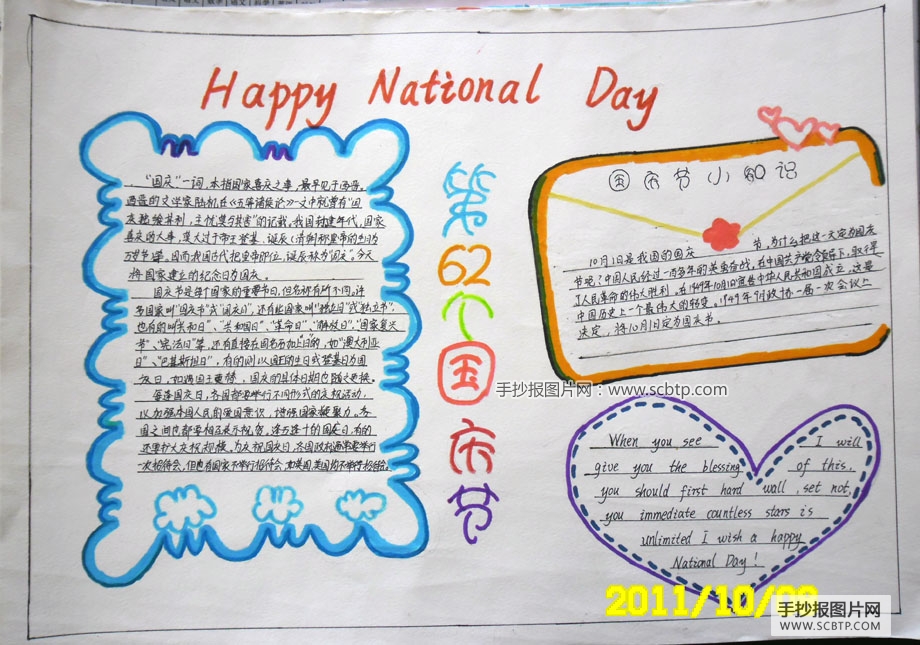 Happy National Day
"国庆"一词,本指国家喜庆之事,最早见于西晋。
西晋的文学家陆机在《五等诸侯论》一文中就曾有"国
庆独飨其利,主忧莫与其害"的记载。我国封建年代,国家
喜庆的大事,莫大过于帝王登基、诞辰(清朝称皇帝的生日为
万岁节)等。因而我国古代把皇帝即位、诞辰称为"国庆"。今天
将国家建立的纪念日为国庆。
国庆节是每个国家的重要节日,但名称有所不同。许
多国家叫"国庆节"或"国庆日",还有些国家叫"独立日"或"独立节",
也有的叫"共和日"、"共和国日"、"革命日"、"解放日"、"国家复兴
节"、"宪法日"等,还有直接在国名后加上"日"的,如"澳大利亚
日"、"巴基斯坦日",有的则以国王的生日或登基日为国
庆日,如遇国王更替,国庆的具体日期也随之更换。
每逢国庆日,各国都要举行不同形式的庆祝活动,
以加强本国人民的爱国意识,增强国家凝聚力。各
国之间也都要相互表示祝贺。逢五逢十的国庆日,有的
还要扩大庆祝规模。为庆祝国庆日,各国政府通常要举行
一次招待会,但也有国家不举行招待会,如美国、英国均不举行招待会。
第
62
个
国
庆
节
国庆节小知识
10月1日是我国的国庆 节,为什么把这一天定为国庆
节呢?中国人民经过一百多年的英勇奋战,在中国共产党的领导下,取得
了人民革命的伟大胜利。在1949年10月1日宣告中华人民共和国成立,这是
中国历史上一个最伟大的转变。1949年9月政协一届一次会议上
决定,将10月1日定为国庆节。
手抄报图片网:www.scbtp.com
When you see I will
give you the blessing of this,
you should first hard wall, set not,
you immediate countless stars is
unlimited I wish a happy
National Day!
2011/10/
手抄报图片网
WWW.SCBTP.COM